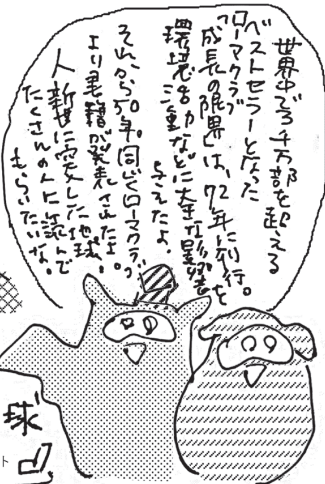 世界中で3千万部を超える
ベストセラーとなった
ローマクラブ
「成長の限界」は、72年に刊行。
環境活動などに大きな影響を
与えたよ。
それから50年。同じくローマクラブ
より書籍が発表されたよ。
人新世に した地球。
たくさんの人に読んで
もらいたいな。
球
ト